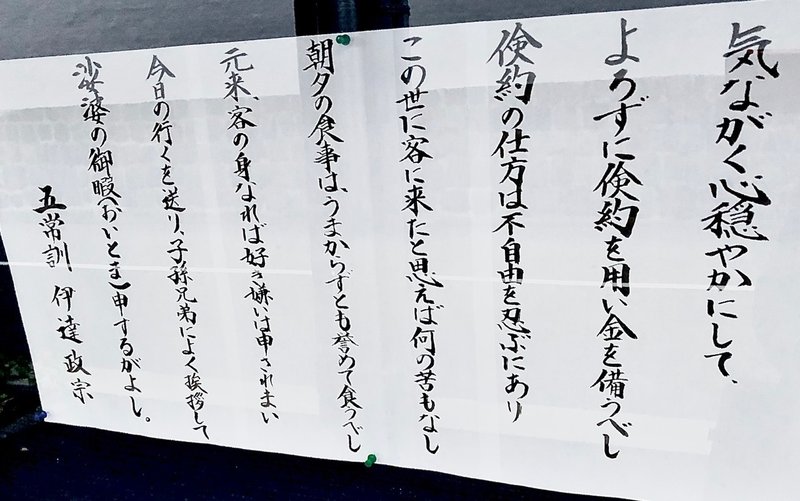 気ながく心穏やかにして、
よろずに倹約を用い金を備うべし
倹約の仕方は不自由を忍ぶにあり
この世に客に来たと思えば何の苦もなし
朝夕の食事は、うまからずとも誉めて食うべし
元来、客の身なれば好き嫌いは申されまい
今日の行くを送り、子孫兄弟によく挨拶して
娑婆の御暇(おいとま)申するがよし。
五常訓 伊達政宗